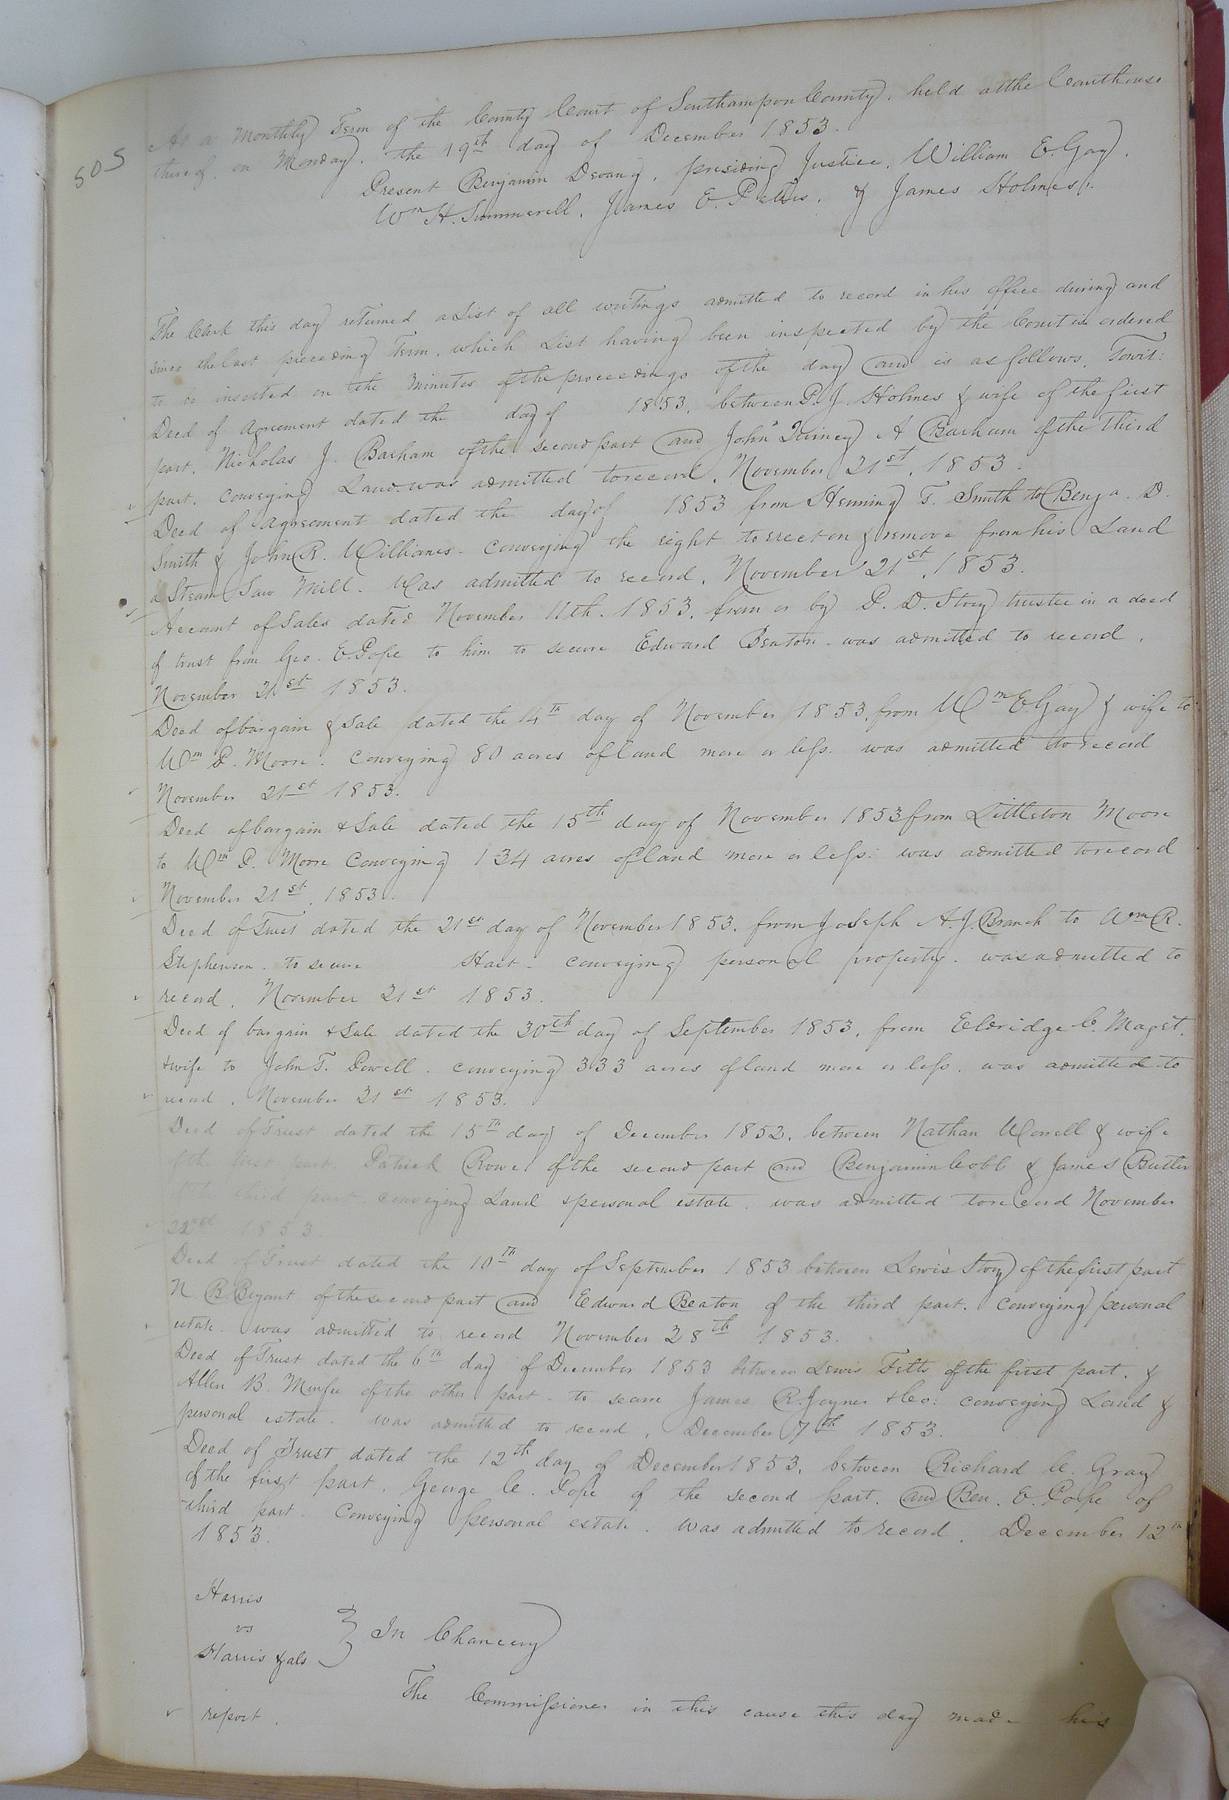 505
At a Monthly Term of the County Court of Southampton County, held at the Courthouse
thereof, on Monday, the 19th day of December 1853.
Present Benjamin Devany, presiding Justice, William E. Gay,
Wm H. Summerell, James E. Peters, & James Holmes,
The Clerk this day returned a List of all writings admitted to record in his office during and
since the last preceeding Term, which List having been inspected by the Court is ordered
to be inserted on the Minutes of the proceedings of the day and is as follows, Towit:
Deed of Agreement dated the day of 1853, between P. J. Holmes & wife of the first
part, Nicholas J. Barham of the second part and John Quincy A Barham of the third
part, conveying Land. was admitted to record, November 21st, 1853.
Deed of Agreement dated the day of 1853 from Henning T. Smith to Benja. D.
Smith & John R. Williams - conveying the right to erect on & remove from his Land
a Steam Saw Mill. Was admitted to record, November 21st, 1853.
Account of Sales dated November 11th. 1853, from or by P. D. Story trustee in a deed
of trust from Geo. E. Pope to him to secure Edward Beaton. was admitted to record,
November 21st 1853.
Deed of bargain & Sale dated the 14th day of November 1853, from Wm E Gay & wife to
Wm P. Moore. Conveying 80 acres of Land more or less. was admitted to record
November 21st 1853.
Deed of bargain & Sale dated the 15th day of November 1853 from Littleton Moore
to Wm P. Moore Conveying 134 acres of land more or less: was admitted to record
November 21st, 1853.
Deed of Trust dated the 21st day of November 1853, from Joseph A. J. Branch to Wm R.
Stephenson. to secure Hart - conveying personal property. was admitted to
record, November 21st 1853.
Deed of bargain & Sale dated the 30th day of September 1853, from Eldridge C. Maget.
& wife to John T. Powell. conveying 333 acres of land more or less. was admitted to
record, November 21st 1853.
Deed of Trust dated the 15th day of December 1852, between Nathan Worrell & wife
of the first part Patrick Rowe of the second part and Benjamin Cobb & James Butler
of the third part, conveying Land & personal estate, was admitted to record November
22nd 1853.
Deed of Trust dated the 10th day of September 1853 between Lewis Story of the first part
N B. Bryant of the second part and Edward Beaton of the third part. conveying personal
estate. was admitted to record November 28th 1853.
Deed of Trust dated the 6th day of December 1853 between Lewis Fitts of the first part, &
Allen B. of the other part - to secure James R. Joyner & Co: conveying Land &
personal estate. was admitted to record, December 7th 1853.
Deed of Trust dated the 12th day of December 1853, between Richard C. Gray
of the first part, George C. Pope of the second part, and Ben. E. Pope of
third part. Conveying personal estate. was admitted to record, December 12th
1853.
Harris
vs
Harris & als
} In Chancery
The Commissioner in this cause this day made his
report.